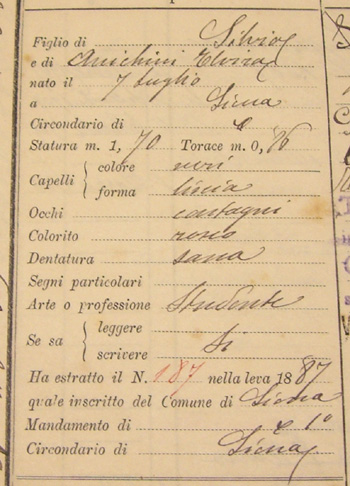 Figlio di Silvio
e di Anichini Elvira
nato il 7 Luglio
a Siena
Circondario di
Statura m. 1, 70 Torace m. 0, 86
Capelli colore neri
forma liscia
Occhi castagni
Colorito roseo
Dentatura sana
Segni particolari
Arte o professione Studente
Se sa leggere
scrivere Si
Ha estratto il N. 187 nella leva 1887
quale inscritto del Comune di Siena
Mandamento di 1º
Circondario di Siena